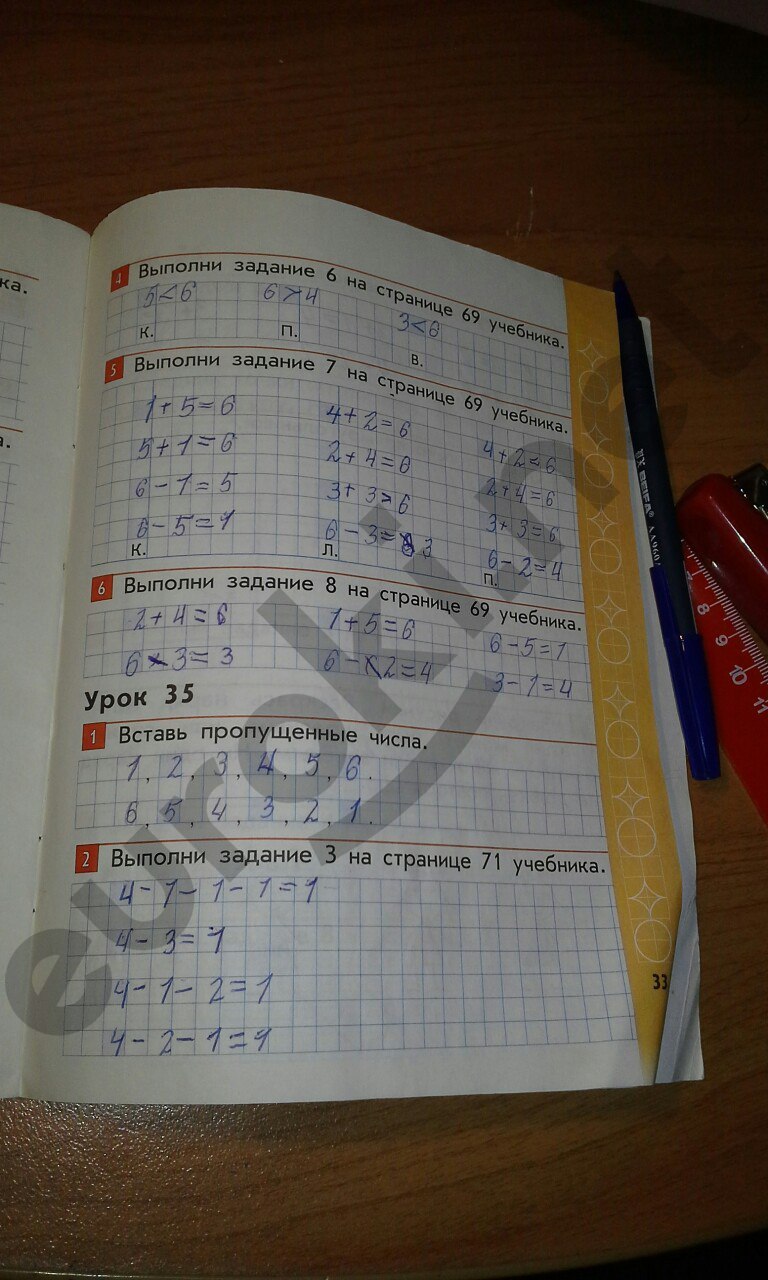 ка.
а.
4 Выполни задание 6 на странице 69 учебника.
5<6 6>4 3<6
К. П. В.
5 Выполни задание 7 на странице 69 учебника.
1+5=6 4+2=6 4+2=6
5+1=6 2+4=6 2+4=6
6-1=5 3+3=6 3+3=6
6-5=1 6-3=3 6-2=4
К. Л. П.
6 Выполни задание 8 на странице 69 учебника.
2+4=6 1+5=6 6-5=1
6-3=3 6-2=4 3-1=4
Урок 35
1 Вставь пропущенные числа.
1, 2, 3, 4, 5, 6.
6, 5, 4, 3, 2, 1.
2 Выполни задание 3 на странице 71 учебника.
4-1-1-1=1
4-3=1
4-1-2=1
4-2-1=1
33
7 8 9 10 11
eurokin